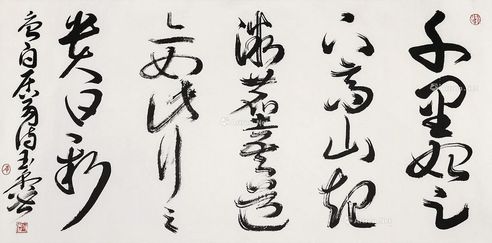 千里始足
下高山起
微塵吾道
亦如此行之
貴日新
白居易诗玉